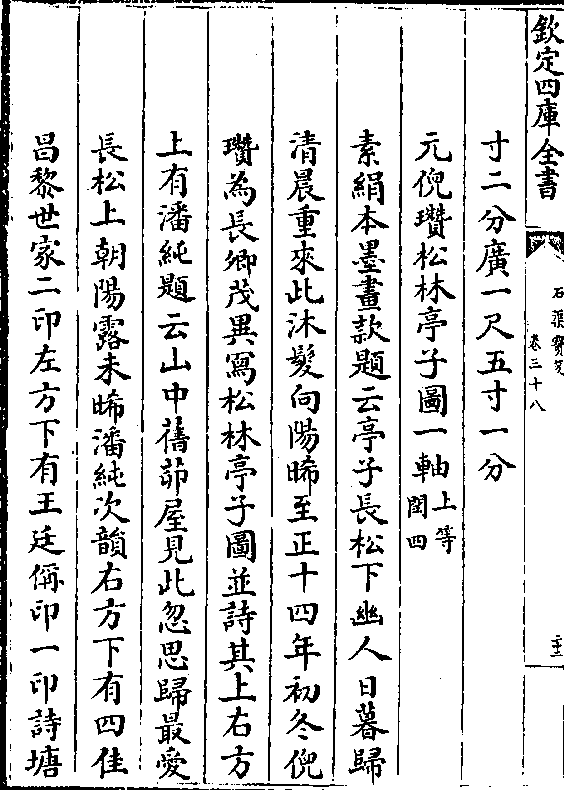 欽定四庫全書
石渠寶笈
卷三十八
寸二分廣一尺五寸一分
元倪瓚松林亭子圖一軸上等閏四
素絹本墨畫款題云亭子長松下幽人日暮歸
清晨重來此沐髮向陽晞至正十四年初冬倪
瓚為長卿茂異寫松林亭子圖並詩其上右方
上有潘純題云山中舊茆屋見此忽思歸最愛
長松上朝陽露未晞潘純次韻右方下有四佳
昌黎世家二印左方下有王廷偁印一印詩塘